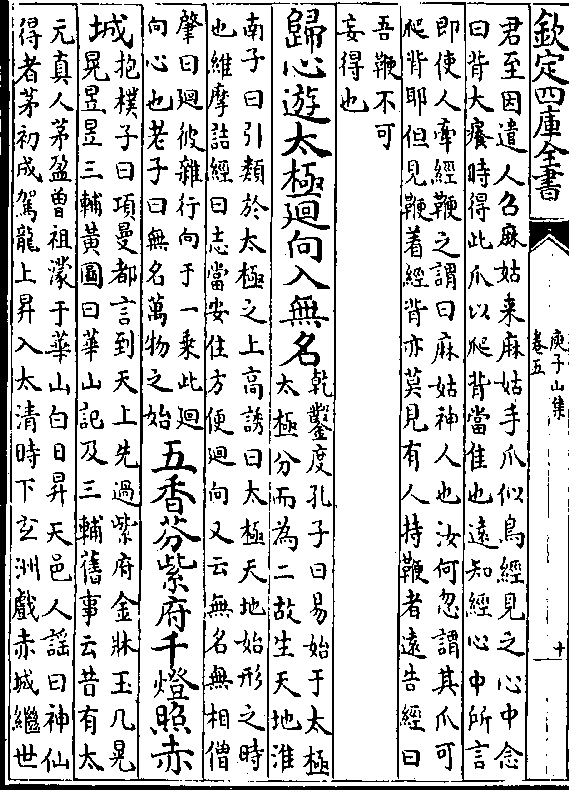 欽定四庫全書
庾子山集
卷五
十
君至因遣人召麻姑来麻姑手爪似鳥經見之心中念
曰背大癢時得此爪以爬背當佳也遠知經心中所言
即使人牽經鞭之謂曰麻姑神人也汝何忽謂其爪可
爬背耶但見鞭着經背亦莫見有人持鞭者遠告經曰
吾鞭不可
妄得也
歸心遊太極廻向入無名
乾鑿度孔子曰易始于太極
太極分而為二故生天地淮
南子曰引類於太極之上高誘曰太極天地始形之時
也維摩詰經曰志當安住方便廻向又云無名無相僧
肇曰廻彼雜行向于一乗此廻
向心也老子曰無名萬物之始
五香芬紫府千燈照赤
城
抱樸子曰項曼都言到天上先過紫府金牀玉几晃
晃昱昱三輔黃圖曰華山記及三輔舊事云昔有太
元真人茅盈曾祖濛于華山白日昇天邑人謡曰神仙
得者茅初成駕龍上昇入太清時下𤣥洲戲赤城繼世